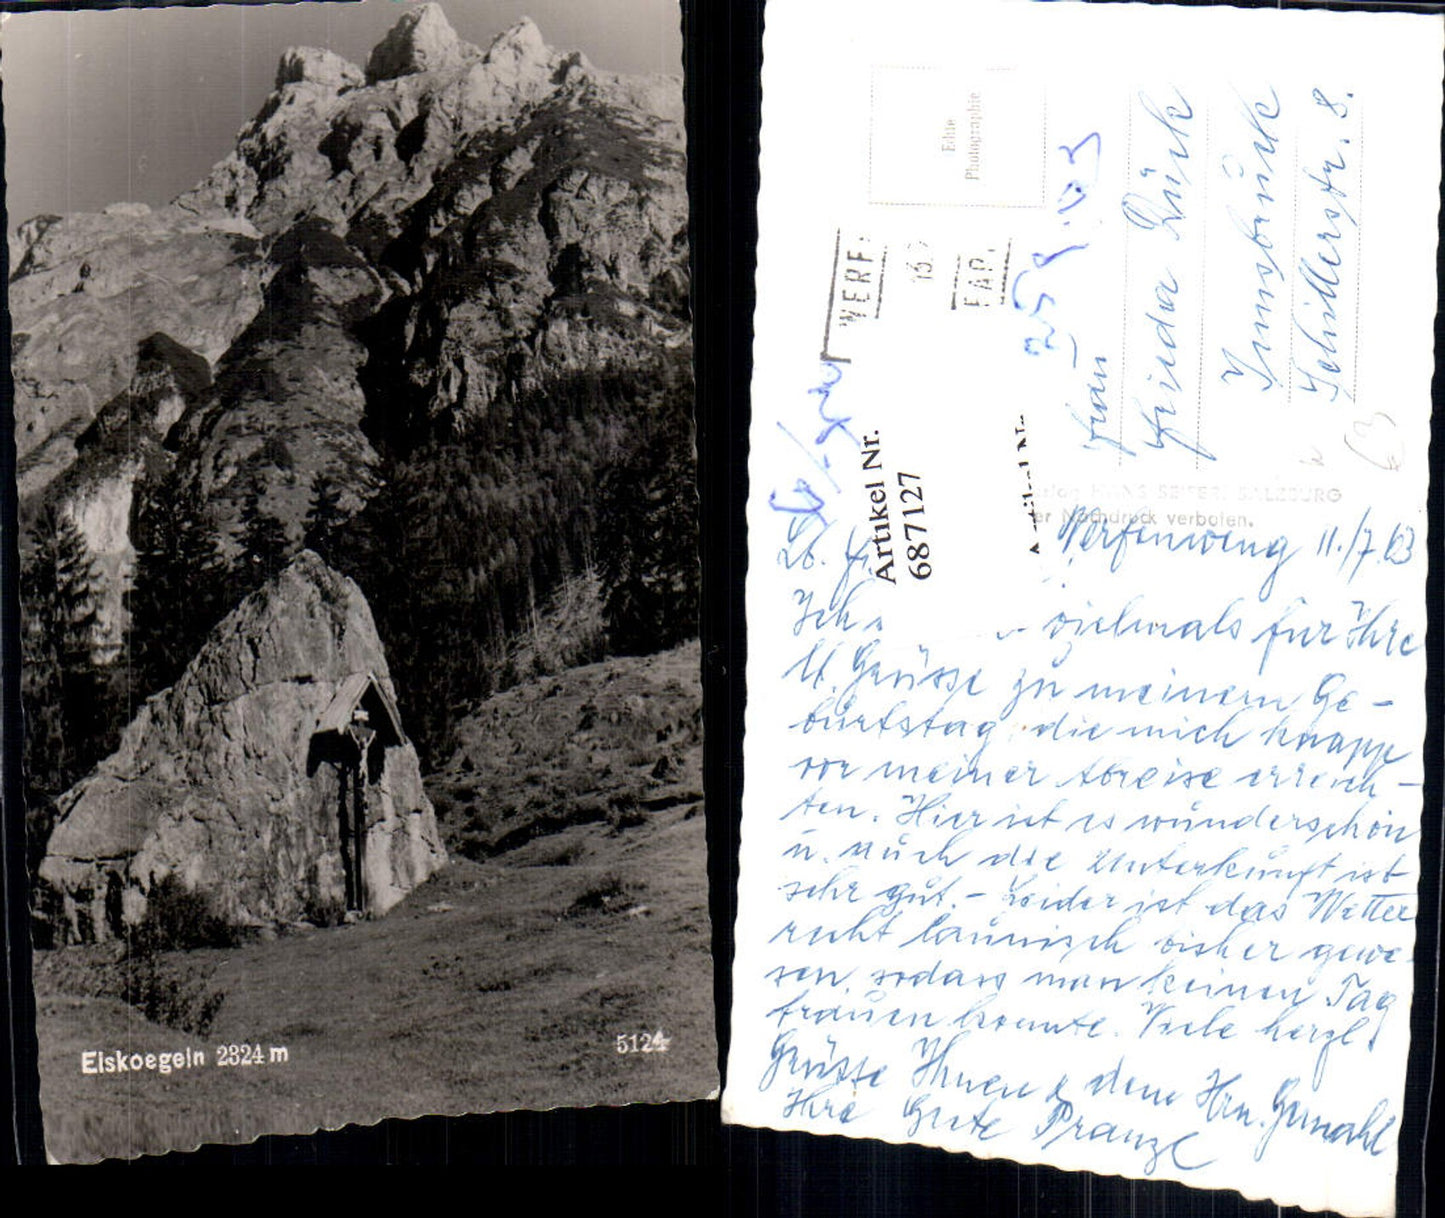 Eiskoegeln 2324 m
5124
Echte
Photographie
WERF
13
FAP.
25 9. 03
Artikel Nr.
687127
Frau
Frieda Rück
Innsbruck
Schillerstr. 8.
63
HANS SEIFERT SALZBURG
er Nachdruck verboten.
Werfenweng 11./7.63
Lb. F
Ich
vielmals für Ihre
lb. Grüsse zu meinem Ge-
burtstag, die mich knapp
vor meiner Abreise erreich-
ten. Hier ist es wunderschön
u. auch die Unterkunft ist
sehr gut. - Leider ist das Wetter
recht launisch bisher gewe-
sen, sodass man keinen Tag
trauen konnte. Viele herzl.
Grüsse Ihnen & dem Hrn. Gemahl
Ihre Grete Pranzl